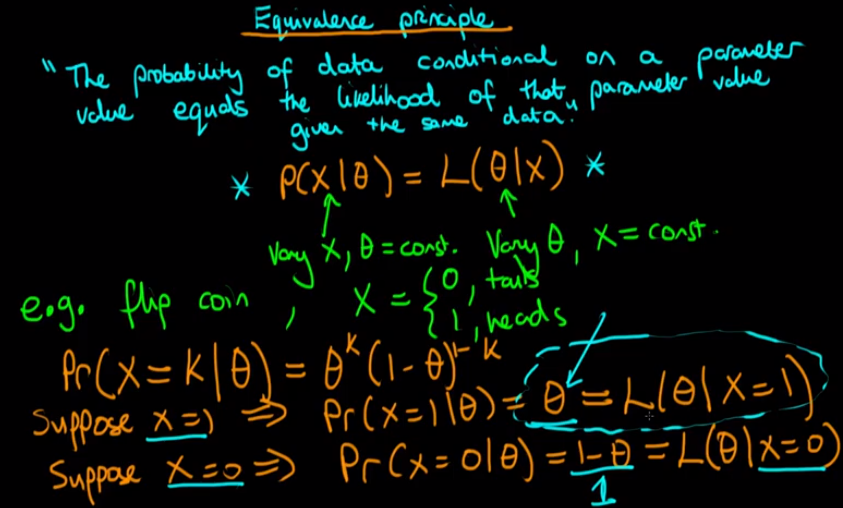 Equivalence principle
"The probability of data conditional on a parameter
value equals the likelihood of that parameter value
given the same data."
* P(X|θ) = L(θ|X) *
Vary X, θ = const. Vary θ, X = const.
e.g. flip coin, X = {0, tails
1, heads
Pr(X=K|θ) = θ^K (1-θ)^1-K
Suppose X=1 ⇒ Pr(X=1|θ) = θ = L(θ|X=1)
Suppose X=0 ⇒ Pr(X=0|θ) = 1-θ = L(θ|X=0)
1